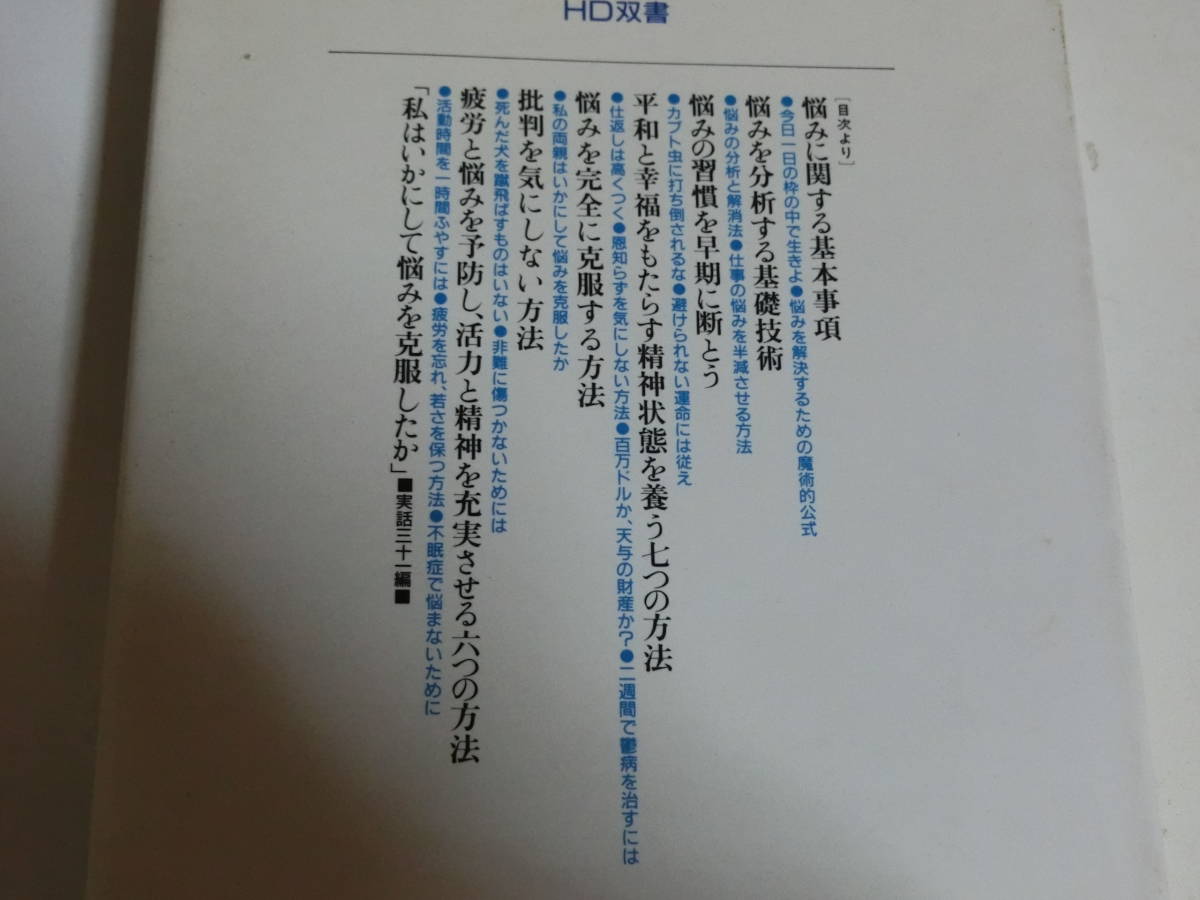 HD双書
[目次より]
悩みに関する基本事項
●今日一日の枠の中で生きよ●悩みを解決するための魔術的公式
悩みを分析する基礎技術
●悩みの分析と解消法●仕事の悩みを半減させる方法
悩みの習慣を早期に断とう
●カブト虫に打ち倒されるな●避けられない運命には従え
平和と幸福をもたらす精神状態を養う七つの方法
●仕返しは高くつく●恩知らずを気にしない方法●百万ドルか、天与の財産か?●二週間で鬱病を治すには
悩みを完全に克服する方法
●私の両親はいかにして悩みを克服したか
批判を気にしない方法
●死んだ犬を蹴飛ばすものはいない●非難に傷つかないためには
疲労と悩みを予防し、活力と精神を充実させる六つの方法
●活動時間を一時間ふやすには●疲労を忘れ、若さを保つ方法●不眠症で悩まないために
「私はいかにして悩みを克服したか」■実話三十一編■